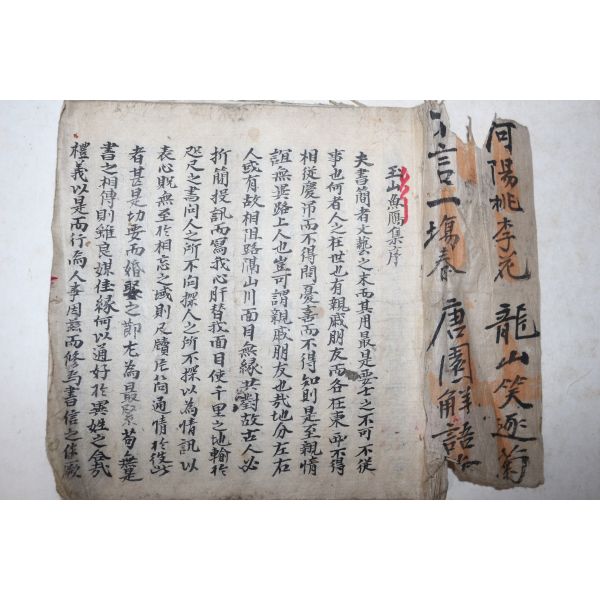 何陽桃李花 龍山笑逐菊
言一塲春 唐園解語
玉山魚鴈集序
夫書簡者文藝之末而其用最是要士之不可不從
事也何者人之在世也有親戚朋友而各在東西不得
相從慶吊而不得問憂喜而不得知則是至親情
誼無異路上人也豈可謂親戚朋友也哉地分左右
人或有故相阻路隔山川面目無緣共對故古人必
折簡投訊而寫我心肝替我面目使千里之地輸於
咫尺之書問人之所不向探人之所不探以為情訊以
表心貺無至於相忘之域則尺牘片簡通情於彼此
者甚是切要而婚娶之節尤為最緊苟無是
書之相傳則雖良媒佳緣何以通好於異姓之合哉
禮義以是而行為人事因玆而修焉書信之